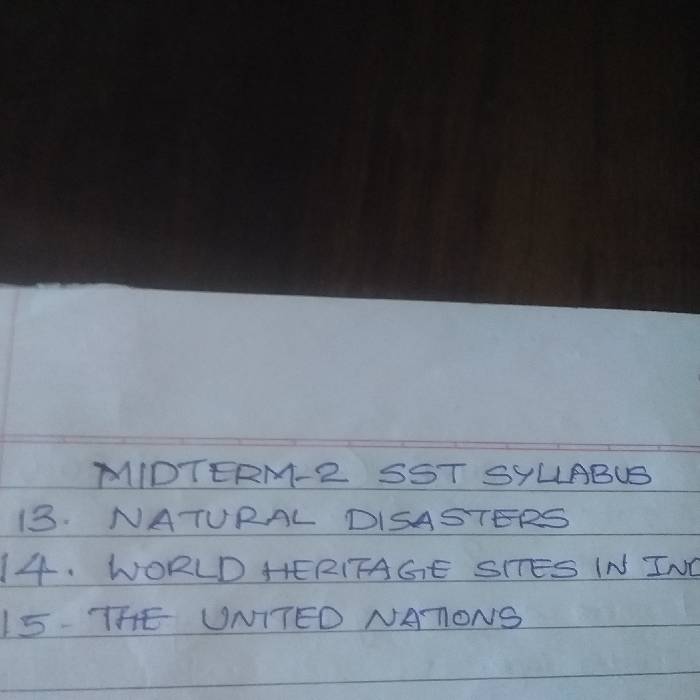 MIDTERM-2 SST SYLLABUS
13. NATURAL DISASTERS
14. WORLD HERITAGE SITES IN IND
15- THE UNITED NATIONS